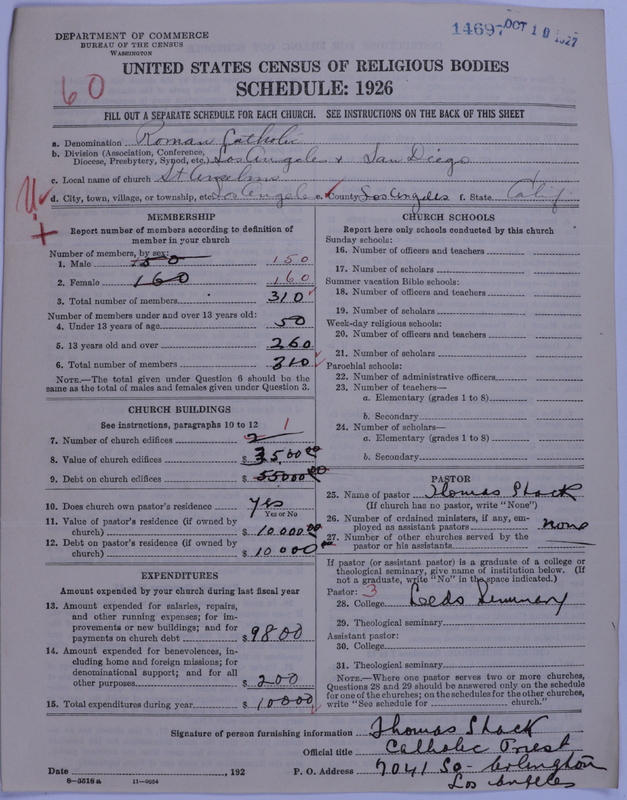 14697 OCT 10 1927
DEPARTMENT OF COMMERCE
BUREAU OF THE CENSUS
WASHINGTON
UNITED STATES CENSUS OF RELIGIOUS BODIES
SCHEDULE: 1926
60
FILL OUT A SEPARATE SCHEDULE FOR EACH CHURCH. SEE INSTRUCTIONS ON THE BACK OF THIS SHEET
a. Denomination Roman Catholic
b. Division (Association, Conference, Diocese, Presbytery, Synod, etc.) Los Angeles & San Diego
c. Local name of church St Anselms
d. City, town, village, or township, etc. Los Angeles e. County Los Angeles f. State Calif.
MEMBERSHIP
Report number of members according to definition of
member in your church
Number of members, by sex:
1. Male 150 150
2. Female 160 160
3. Total number of members 310
Number of members under and over 13 years old:
4. Under 13 years of age 50
5. 13 years old and over 260
6. Total number of members 310
NOTE.—The total given under Question 6 should be
the same as the total of males and females given under Question 3.
CHURCH BUILDINGS
See instructions, paragraphs 10 to 12
7. Number of church edifices 2 1
8. Value of church edifices $ 35,000 00
9. Debt on church edifices $ 55000 00
10. Does church own pastor's residence Yes
Yes or No
11. Value of pastor's residence (if owned by
church) $ 10000 00
12. Debt on pastor's residence (if owned by
church) $ 10000
EXPENDITURES
Amount expended by your church during last fiscal year
13. Amount expended for salaries, repairs,
and other running expenses; for im-
provements or new buildings; and for
payments on church debt $ 9800
14. Amount expended for benevolences, in-
cluding home and foreign missions; for
denominational support; and for all
other purposes $ 200
15. Total expenditures during year $ 10000
CHURCH SCHOOLS
Report here only schools conducted by this church
Sunday schools:
16. Number of officers and teachers
17. Number of scholars
Summer vacation Bible schools:
18. Number of officers and teachers
19. Number of scholars
Week-day religious schools:
20. Number of officers and teachers
21. Number of scholars
Parochial schools:
22. Number of administrative officers
23. Number of teachers—
a. Elementary (grades 1 to 8)
b. Secondary
24. Number of scholars—
a. Elementary (grades 1 to 8)
b. Secondary
PASTOR
25. Name of pastor Thomas Stack
(If church has no pastor, write "None")
26. Number of ordained ministers, if any, em-
ployed as assistant pastors none
27. Number of other churches served by the
pastor or his assistants
If pastor (or assistant pastor) is a graduate of a college or
theological seminary, give name of institution below. (If
not a graduate, write "No" in the space indicated.)
Pastor: 3
28. College Leeds Seminary
29. Theological seminary
Assistant pastor:
30. College
31. Theological seminary
NOTE.—Where one pastor serves two or more churches,
Questions 28 and 29 should be answered only on the schedule
for one of the churches; on the schedules for the other churches,
write "See schedule for church."
Signature of person furnishing information Thomas Stack
Official title Catholic Priest
Date , 192 P. O. Address 7041 So- Arlington
Los Angeles
8-5518a 11-9054